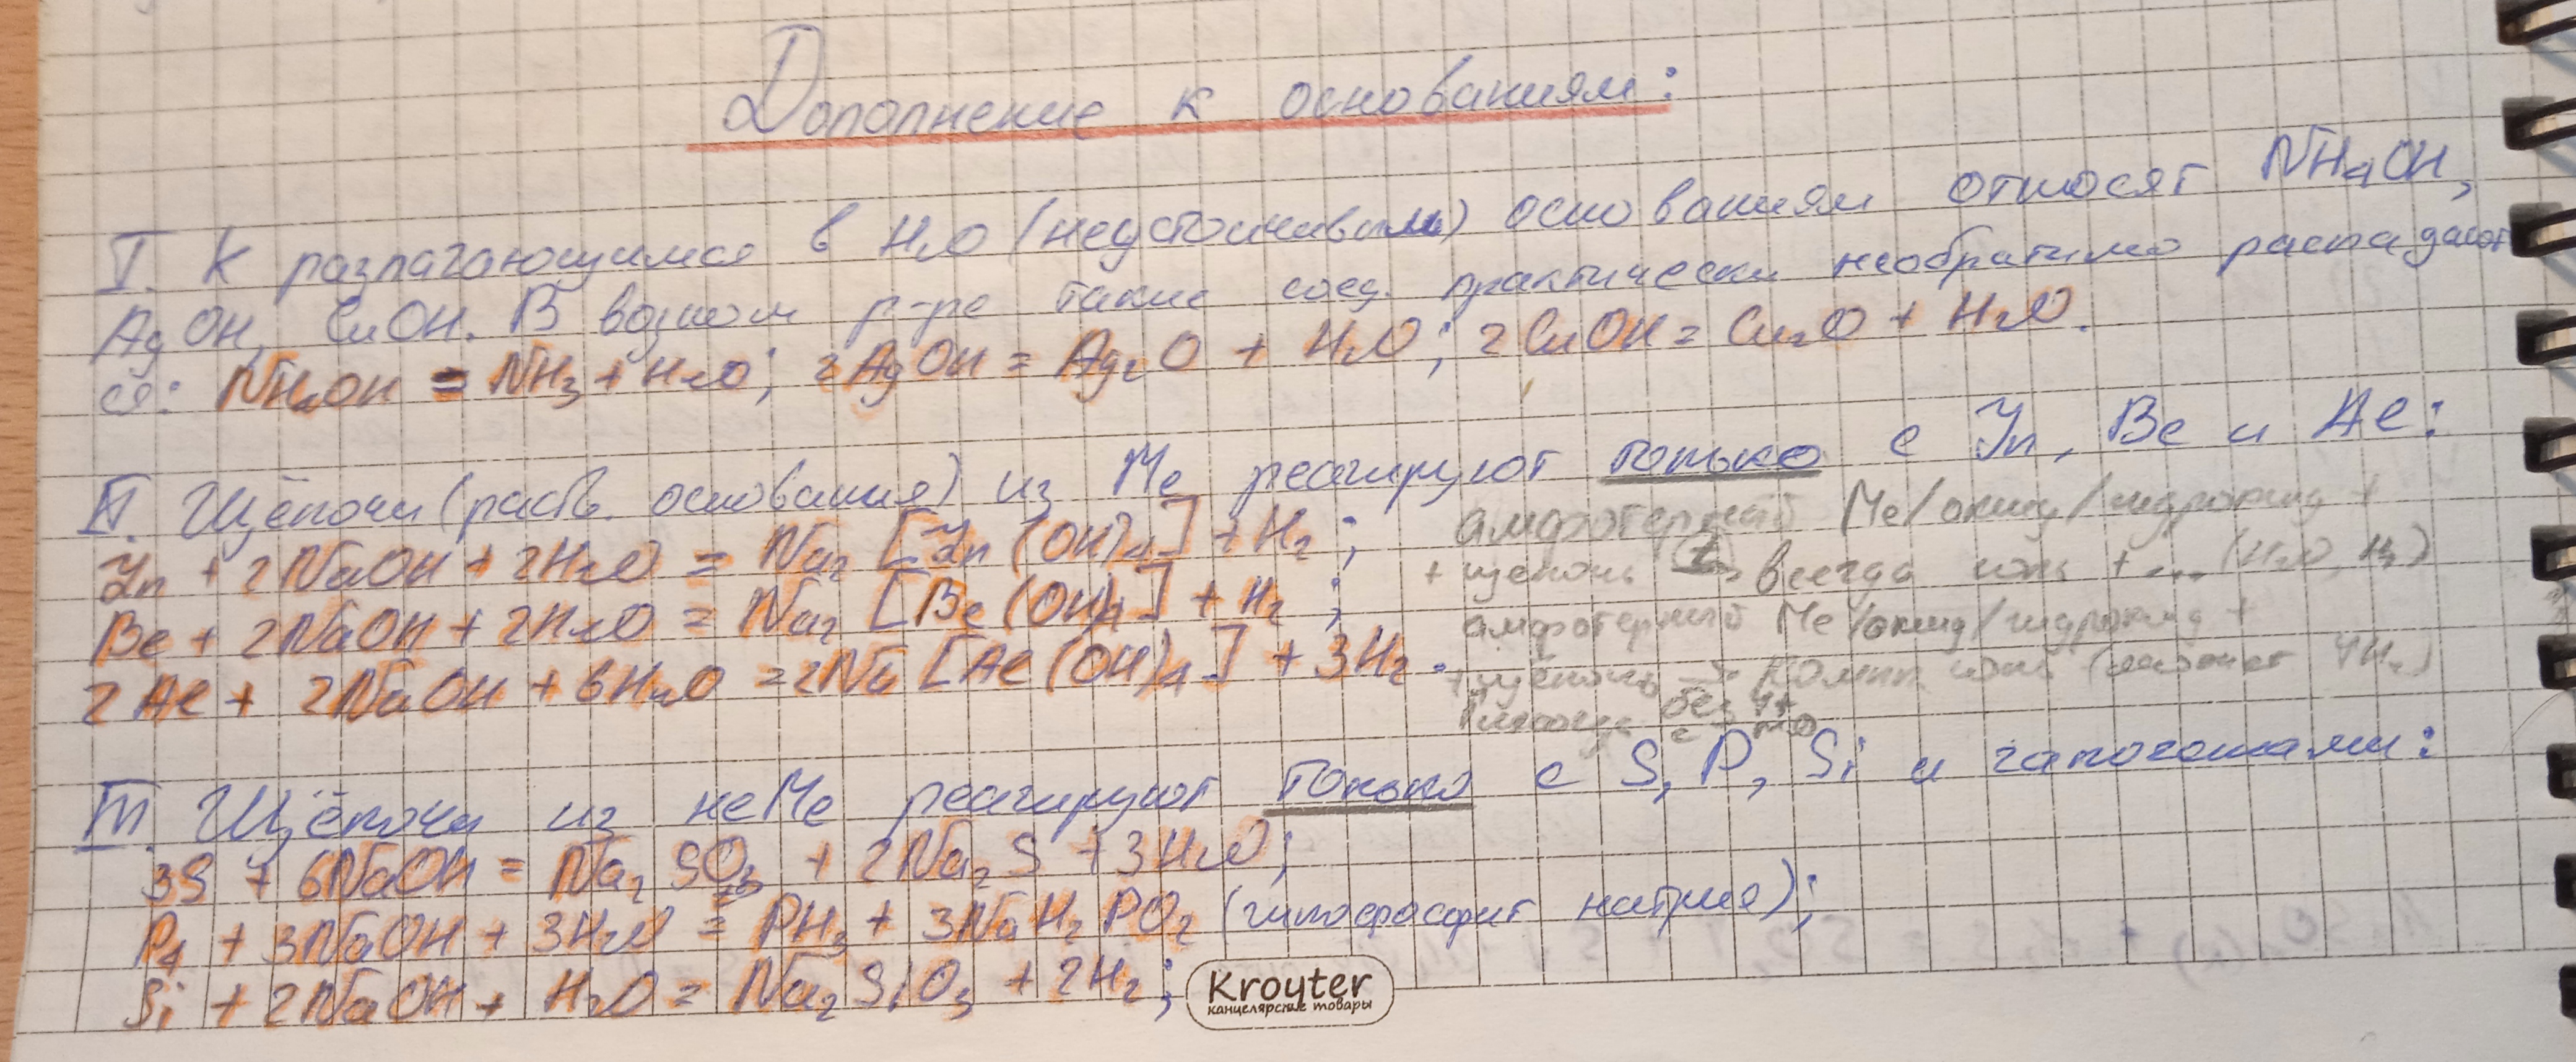 Дополнение к основаниям:
I. К разлагающимся в H₂O (неустойчивым) основаниям относят NH₄OH,
AgOH, CuOH. В водном р-ре такие соед. практически необратимо распадают
ся: NH₄OH = NH₃ + H₂O; 2AgOH = Ag₂O + H₂O; 2CuOH = Cu₂O + H₂O.
II. Щёлочи (раств. основания) из Me реагируют только с Zn, Be и Al:
Zn + 2NaOH + 2H₂O = Na₂[Zn(OH)₄] + H₂;
Be + 2NaOH + 2H₂O = Na₂[Be(OH)₄] + H₂;
2Al + 2NaOH + 6H₂O = 2Na[Al(OH)₄] + 3H₂.
амфотерный Me/оксид/гидроксид +
+ щёлочь → всегда соль + ... (H₂O, H₂)
амфотерный Me/оксид/гидроксид +
+ щёлочь → компл. соль
без
III. Щёлочи из неMe реагируют только с S, P, Si и галогенами:
3S + 6NaOH = Na₂SO₃ + 2Na₂S + 3H₂O;
P₄ + 3NaOH + 3H₂O = PH₃ + 3NaH₂PO₂ (гипофосфит натрия);
Si + 2NaOH + H₂O = Na₂SiO₃ + 2H₂;
Kroyter
канцелярские товары